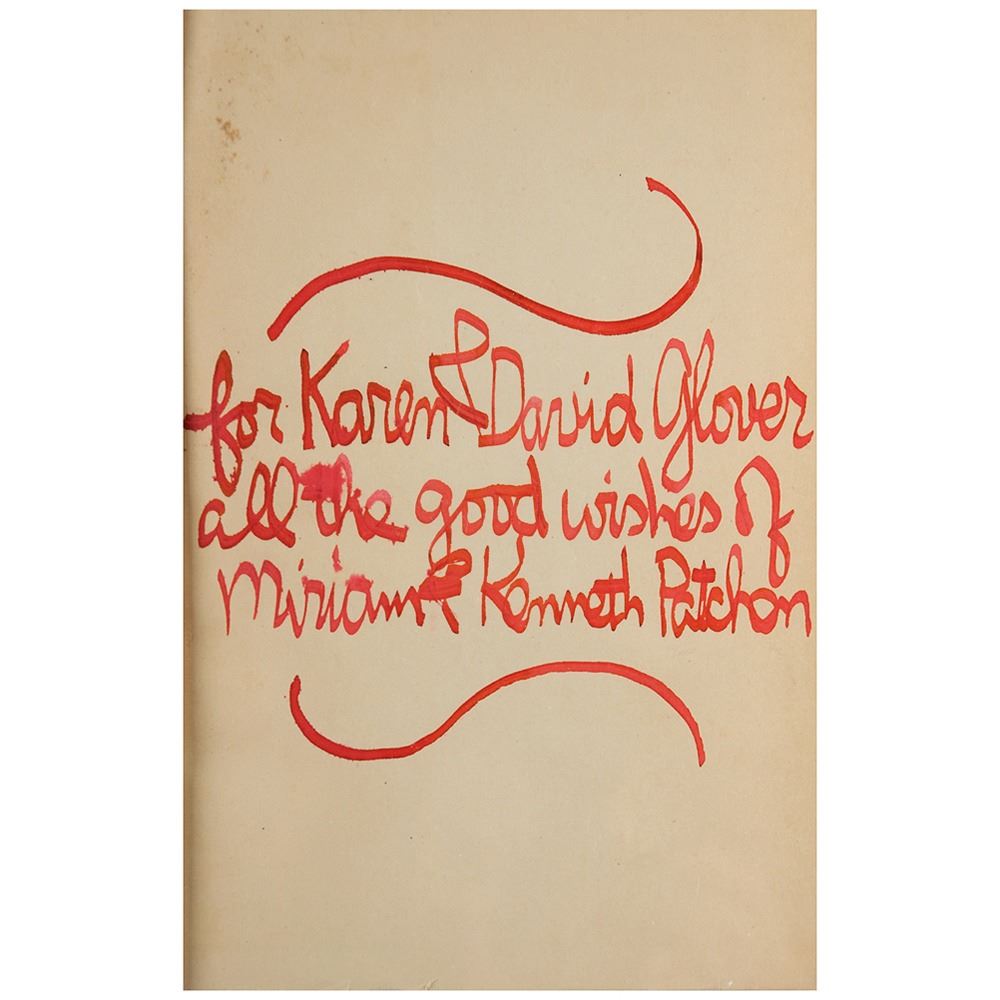 for Karen & David Glover
all the good wishes of
Miriam & Kenneth Patchen